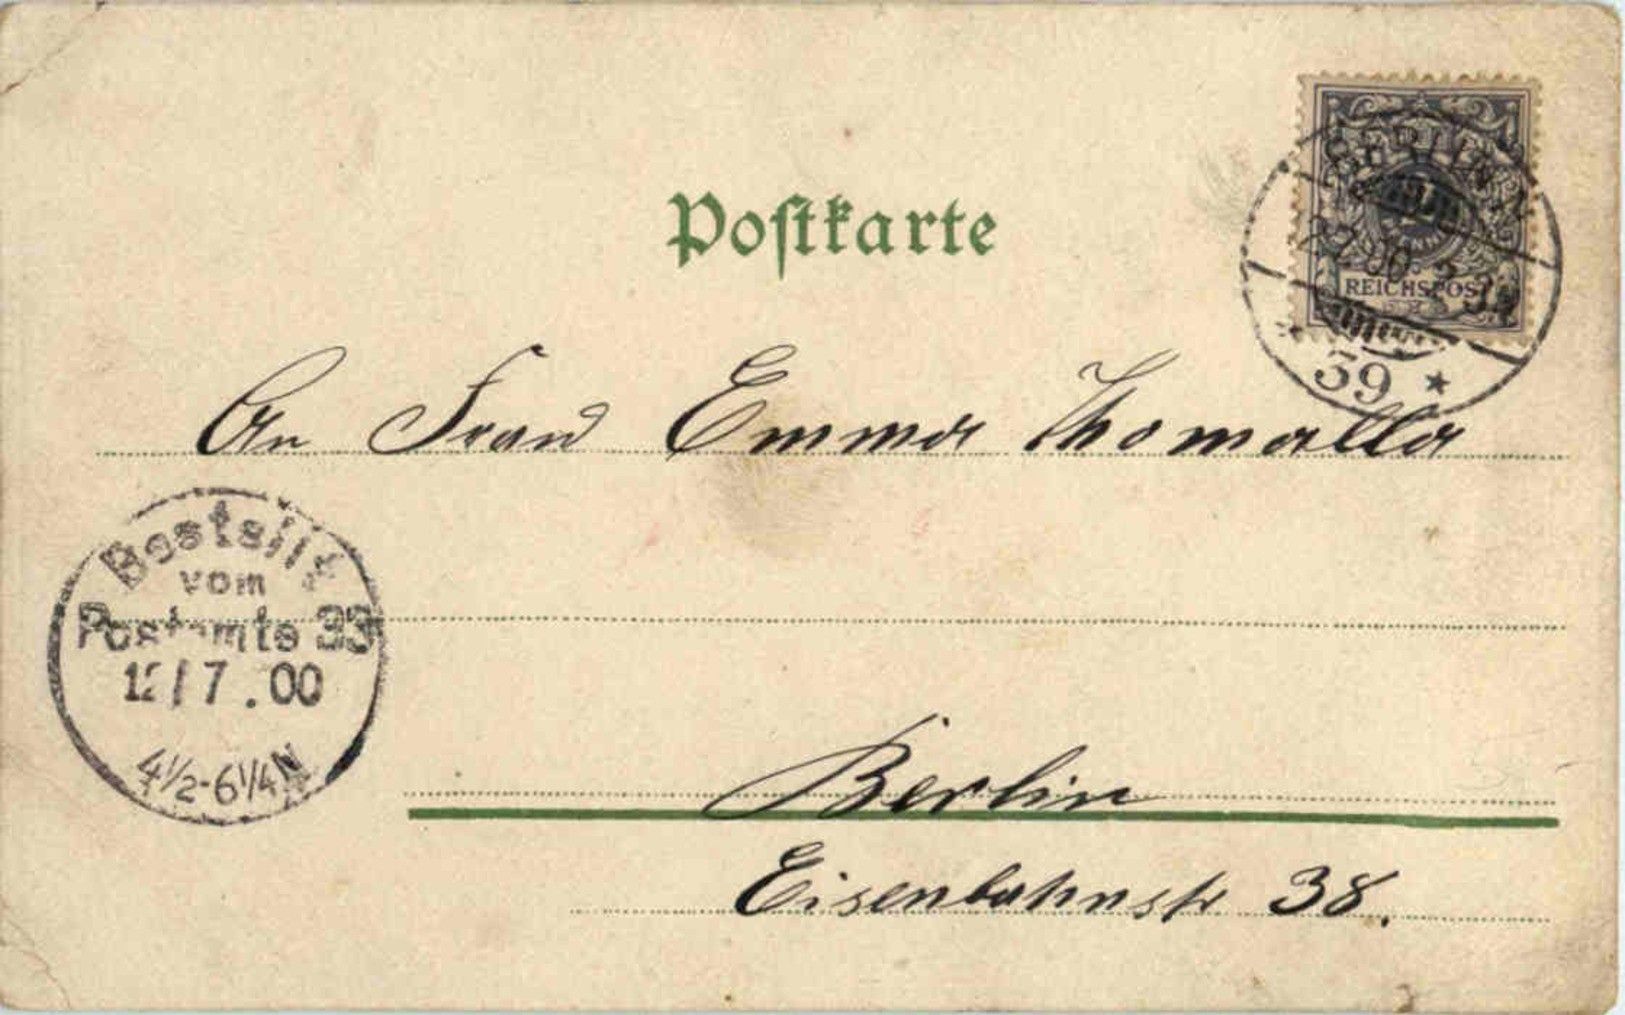 Postkarte
BERLIN N
REICHSPOST
39 *
An Frau Emma Thomalla
Bestellt
vom
Postamte 33
12/7.00
4½-6¼N
Berlin
Eisenbahnstr 38.